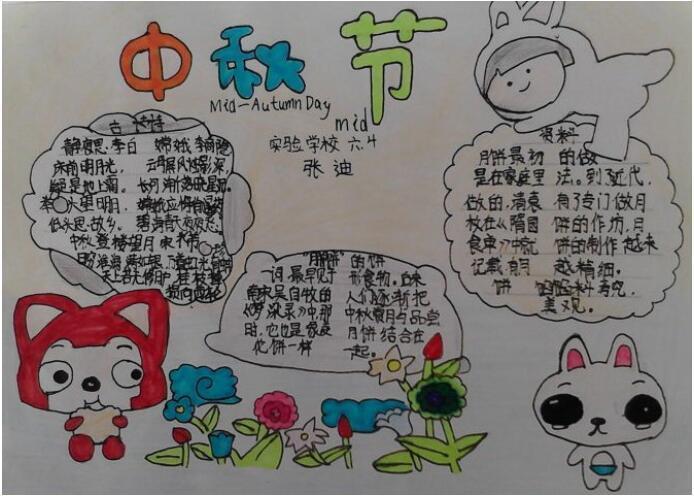 中秋节
Mid-Autumn Day
mid
实验学校 六4
张迪
古诗
静夜思 李白
床前明月光，
疑是地上霜。
举头望明月，
低头思故乡。
嫦娥 李商隐
云母屏风烛影深，
长河渐落晓星沉。
嫦娥应悔偷灵药，
碧海青天夜夜心。
中秋登楼望月
"月饼"
一词，最早见于
南宋吴自牧的
《梦粱录》中，那
时，它也是像
花饼一样
的饼
形食物。后来
人们逐渐把
中秋赏月与品尝
月饼结合在
一起。
资料
月饼最初
是在家庭里
做的，清袁
枚在《隋园
食单》中就
记载有月
饼
的做
法。到了近代，
有了专门做月
饼的作坊，月
饼的制作越来
越精细。
馅料考究，
美观。